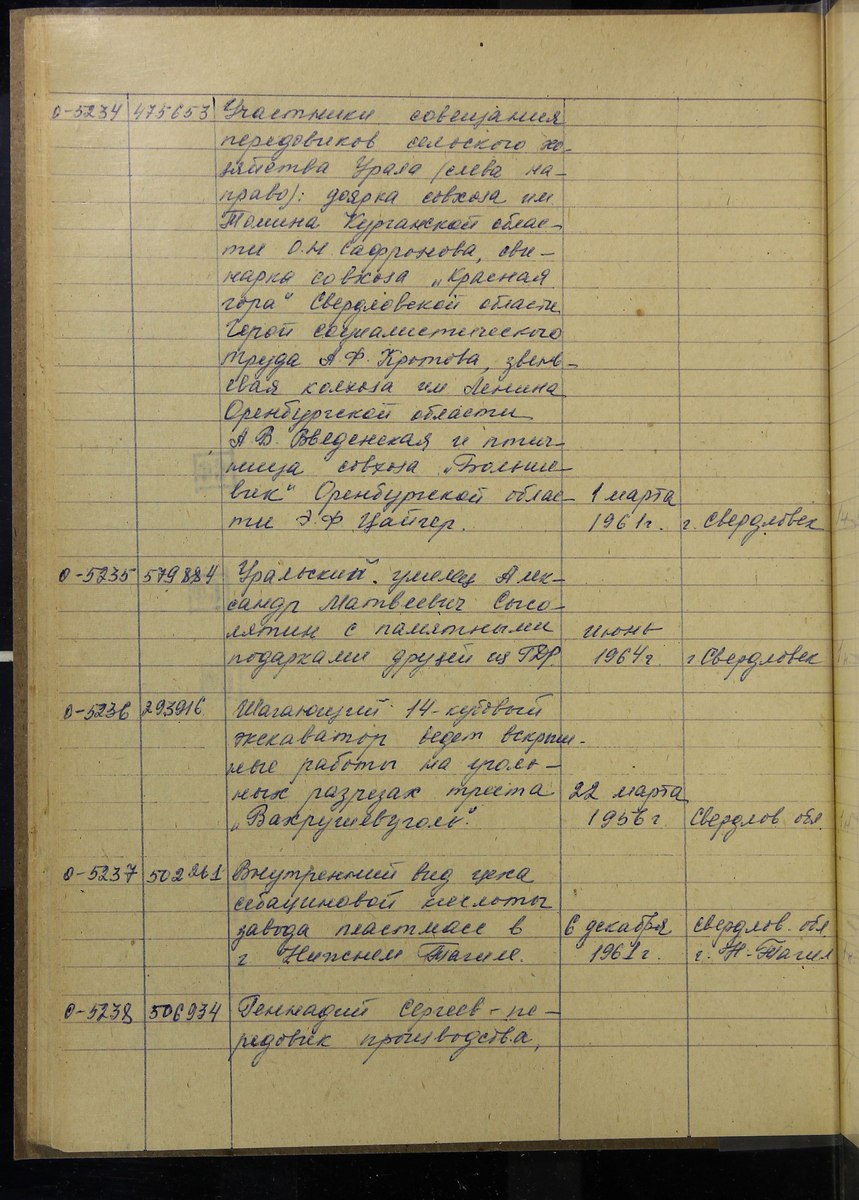 О-5234 475653 Участники совещания
передовиков сельского хо-
зяйства Урала (слева на-
право): доярка совхоза им
Томина Курганской облас-
ти О.Н Сафронова, сви-
нарка совхоза „Красная
гора" Свердловской области
Герой социалистического
труда А Ф. Кротова, звень-
евая колхоза им Ленина
Оренбургской области
А В. Введенская и птич-
ница совхоза „Больше-
вик" Оренбургской облас- 1 марта
ти Э.Ф Цайгер. 1961г. г. Свердловск
О-5235 579884 Уральский умелец Алек-
сандр Матвеевич
с памятными июнь
подарками друзей из ГДР 1964г г Свердловск
О-5236 293916 Шагающий 14-кубовый
экскаватор ведет вскрыш-
ные работы на уголь-
ных разрезах треста 22 марта
„Вахрушевуголь". 1956г. Свердлов. обл.
О-5237 502261 Внутренний вид цеха
себациновой кислоты
завода пластмасс в 6 декабря свердлов. обл
г Нижнем Тагиле. 1961г. г. Н-Тагил
О-5238 506934 Геннадий Сергеев - пе-
редовик производства,